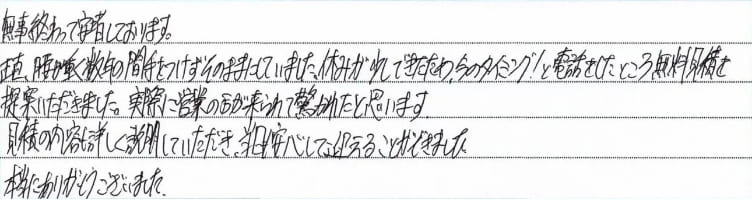 無事終わって安堵しております。
正直、腰が重く数年の間手をつけずそのままにしていました。休みができたため、今のタイミング!と電話をしたところ無料見積を
提案いただきました。実際に営業の方が来られて驚かれたと思います。
見積の内容も詳しく説明していただき、当日安心して迎えることができました。
本当にありがとうございました。